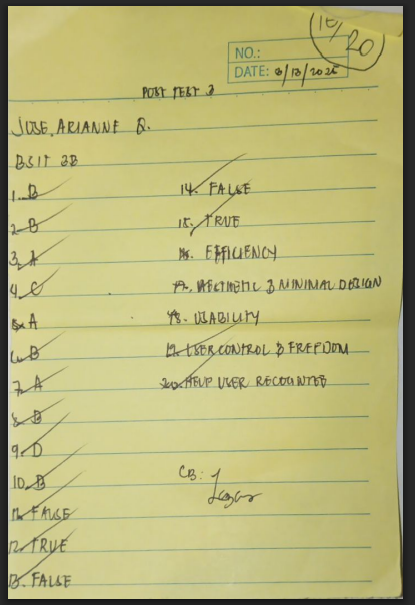 /20
NO.:
DATE: 3/13/2025
POST TEST 3
JOSE, ARIANNE Q.
BSIT 3B
1. B
2. B
3. A
4. C
5. A
6. B
7. A
8. B
9. D
10. B
11. FALSE
12. TRUE
13. FALSE
14. FALSE
15. TRUE
16. EFFICIENCY
17. AESTHETIC & MINIMAL DESIGN
18. USABILITY
19. USER CONTROL & FREEDOM
20. HELP USER
CB: